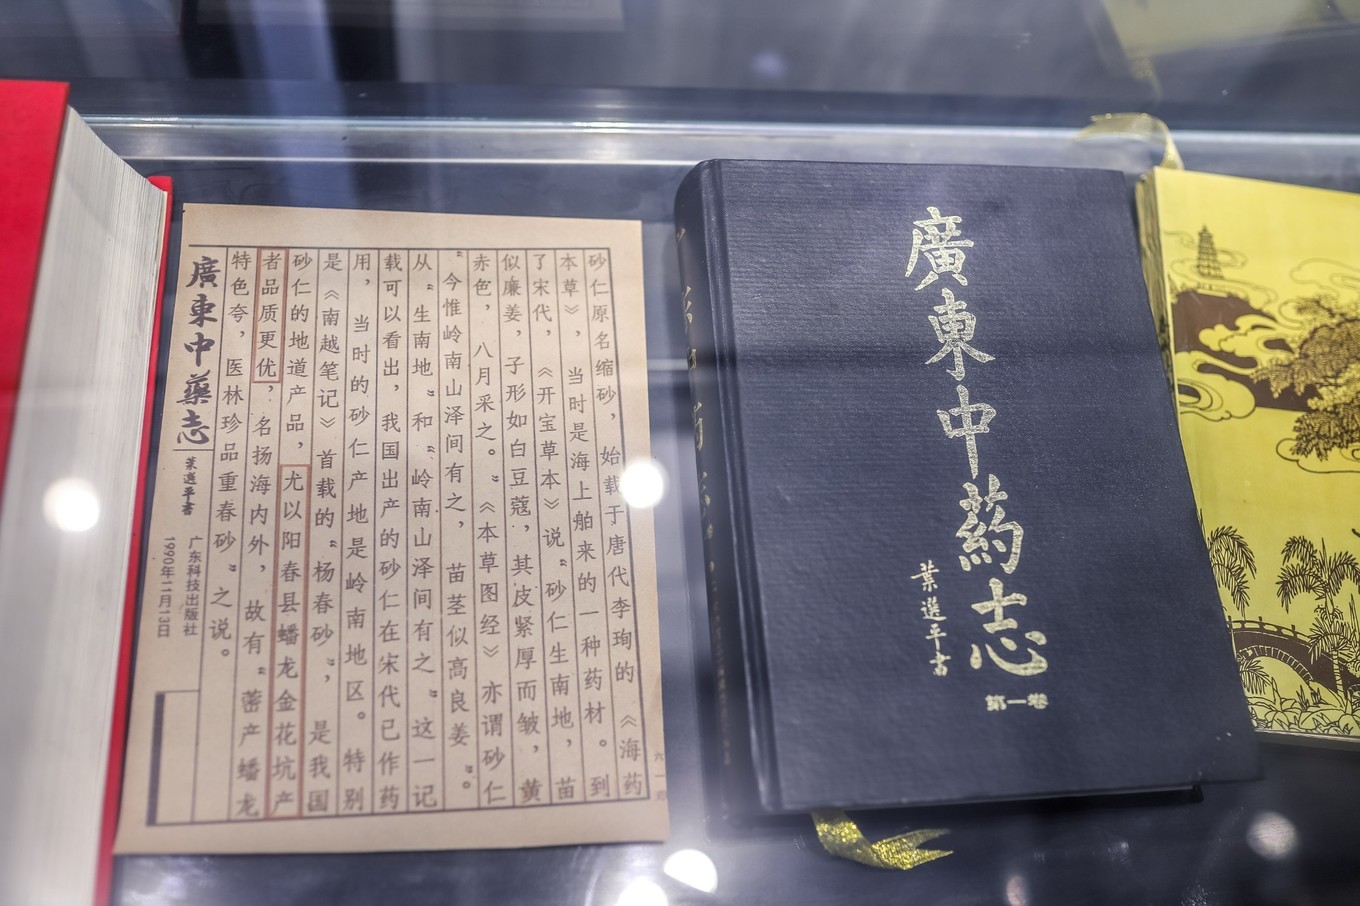 砂仁原名缩砂，始载于唐代李珣的《海药
本草》，当时是海上舶来的一种药材。到
了宋代，《开宝草本》说“砂仁生南地，苗
似廉姜，子形如白豆蔻，其皮紧厚而皱，黄
赤色，八月采之。”《本草图经》亦谓砂仁
“今惟岭南山泽间有之，苗茎似高良姜”。
从“生南地”和“岭南山泽间有之”这一记
载可以看出，我国出产的砂仁在宋代已作药
用，当时的砂仁产地是岭南地区。特别
是《南越笔记》首载的“杨春砂”，是我国
砂仁的地道产品，尤以阳春县蟠龙金花坑产
者品质更优，名扬海内外，故有“蔤产蟠龙
特色夸，医林珍品重春砂”之说。
廣東中藥志
葉選平書
广东科技出版社
1990年11月13日
廣東中药志
葉選平書
第一卷